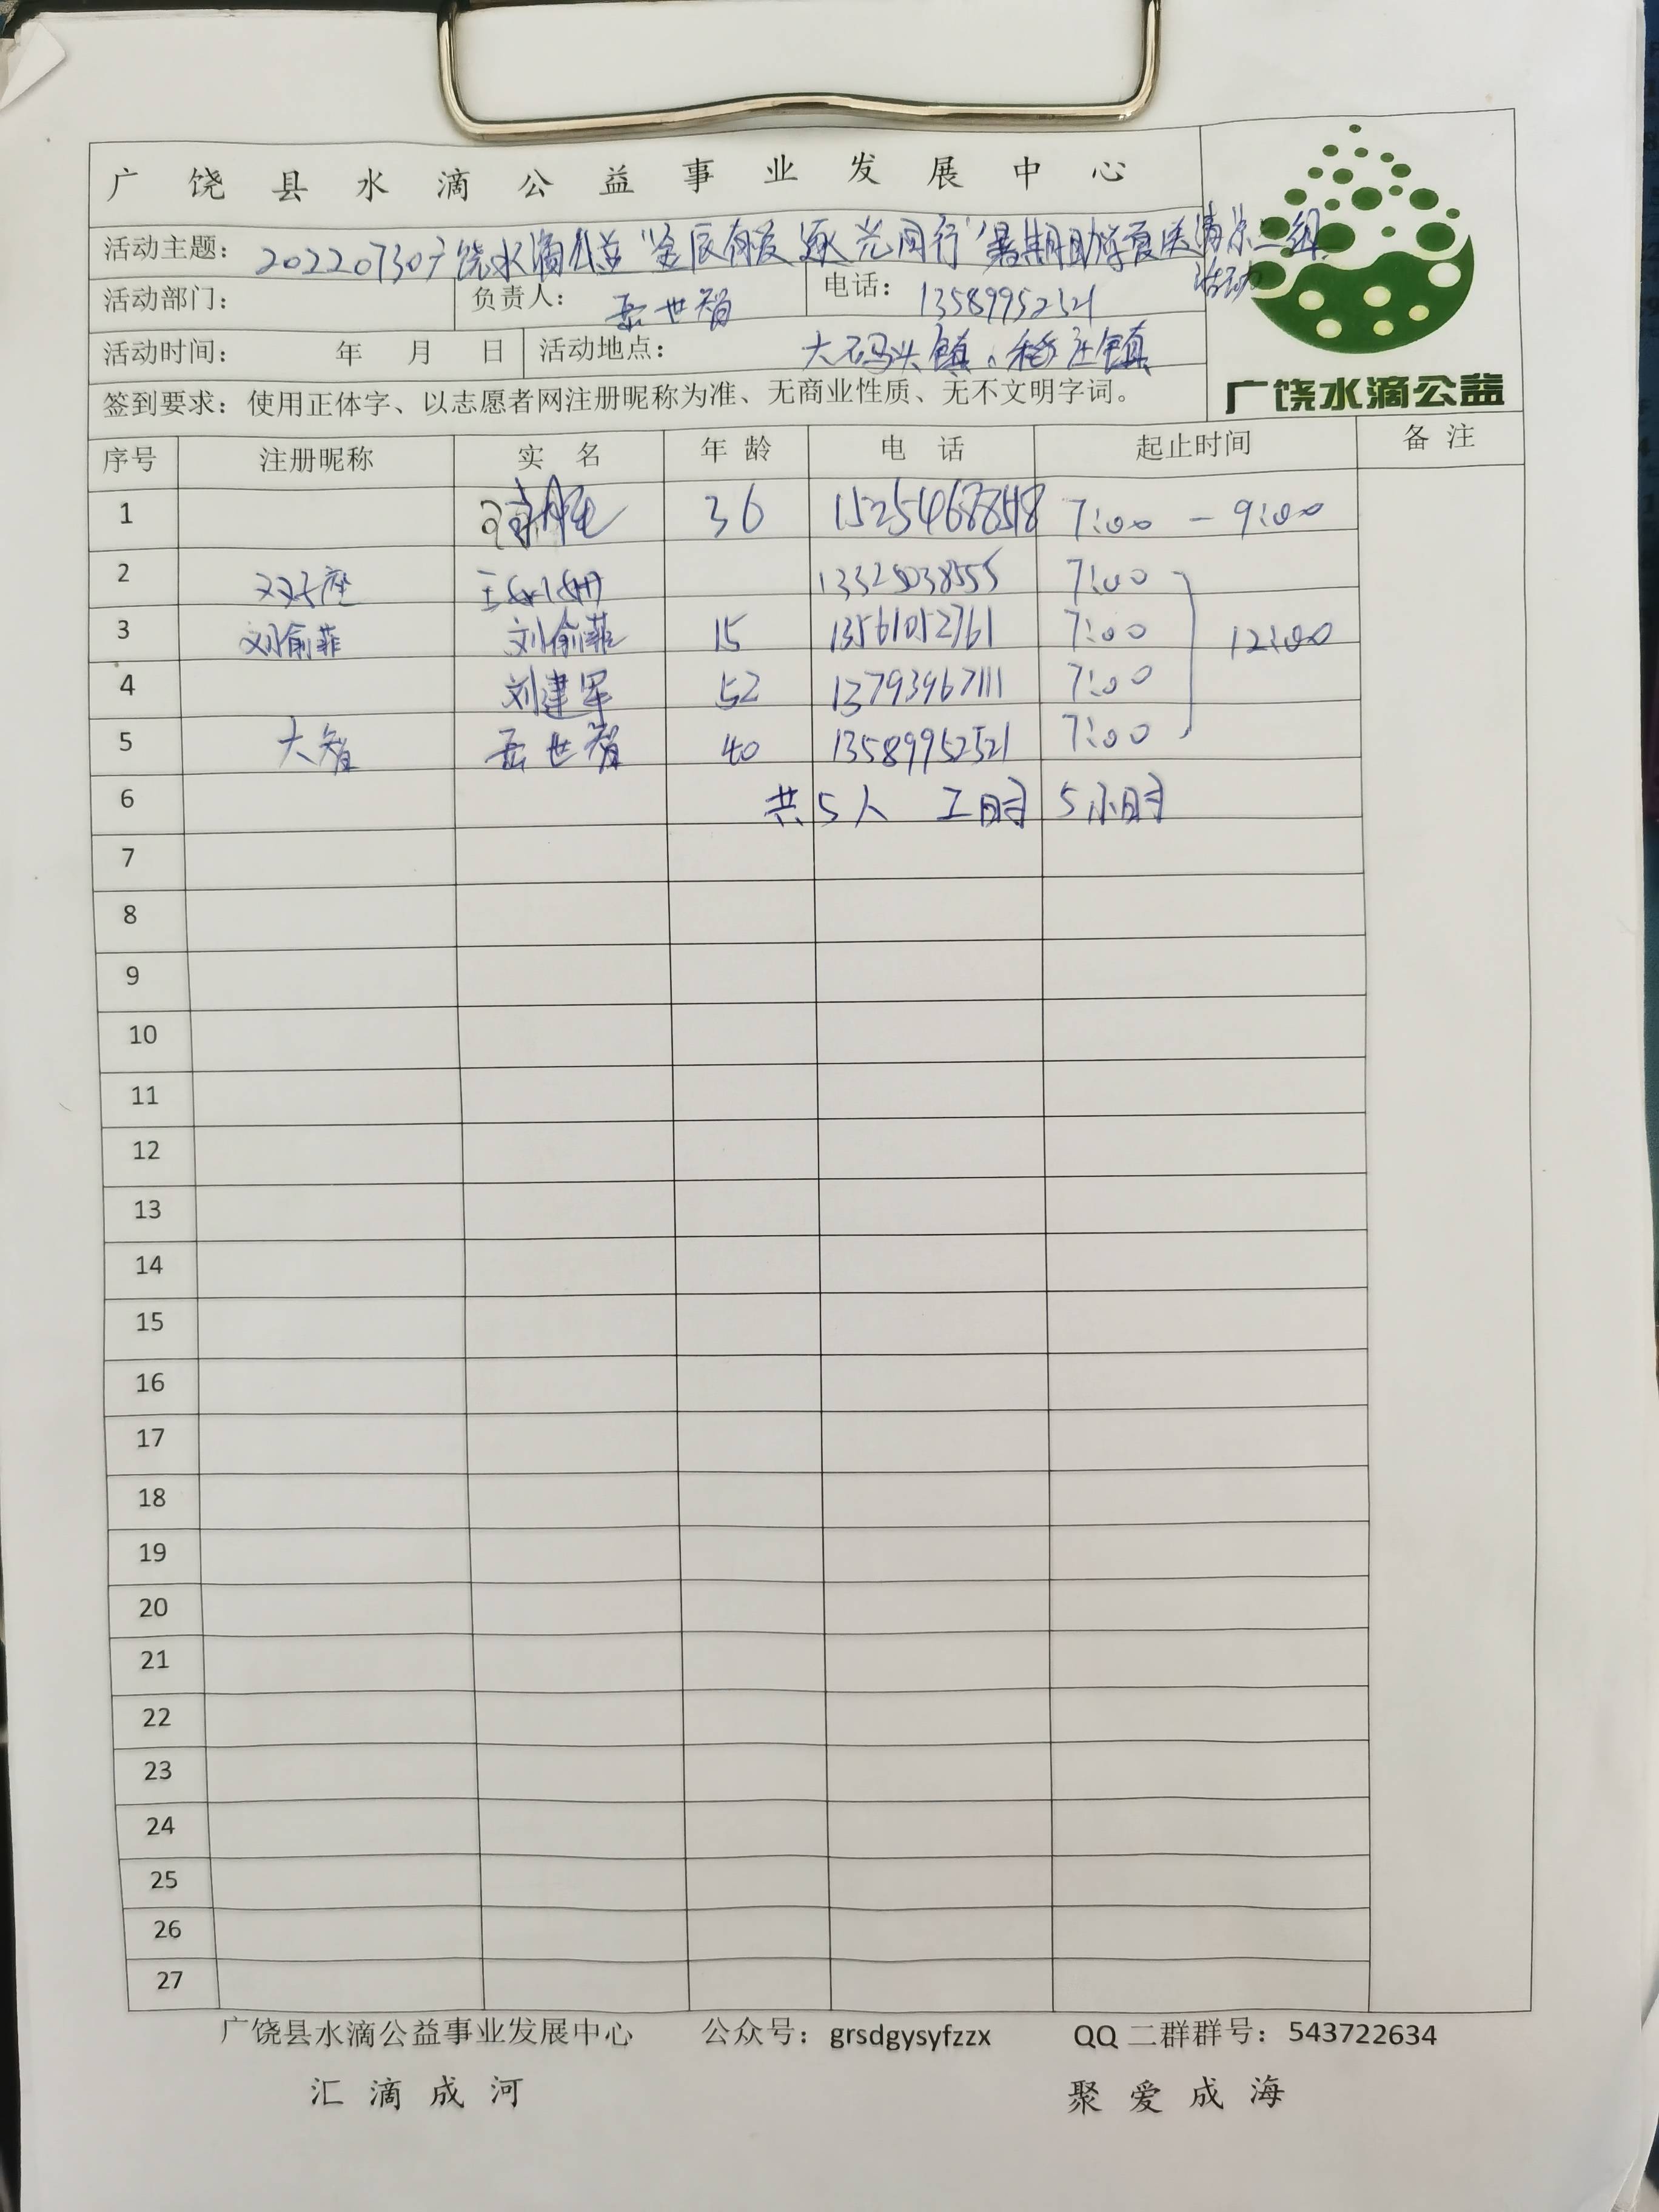 广饶县水滴公益事业发展中心
活动主题: 20220730广饶水滴公益“金辰有爱 逐光同行”暑期助学夏送清凉二组
活动
活动部门: 负责人: 岳世智 电话: 13589952521
活动时间: 年 月 日 活动地点: 大码头镇、稻庄镇
签到要求: 使用正体字、以志愿者网注册昵称为准、无商业性质、无不文明字词。
广饶水滴公益
序号 注册昵称 实名 年龄 电话 起止时间 备注
1 36 15254678548 7:00 - 9:00
2 双子座 王 7:00
3 刘俞菲 刘俞菲 15 13561052761 7:00 12:00
4 刘建军 52 13793967111 7:00
5 大智 岳世智 40 13589952521 7:00
6 共5人 工时 5小时
7
8
9
10
11
12
13
14
15
16
17
18
19
20
21
22
23
24
25
26
27
广饶县水滴公益事业发展中心 公众号: grsdgysyfzzx QQ二群群号: 543722634
汇滴成河 聚爱成海